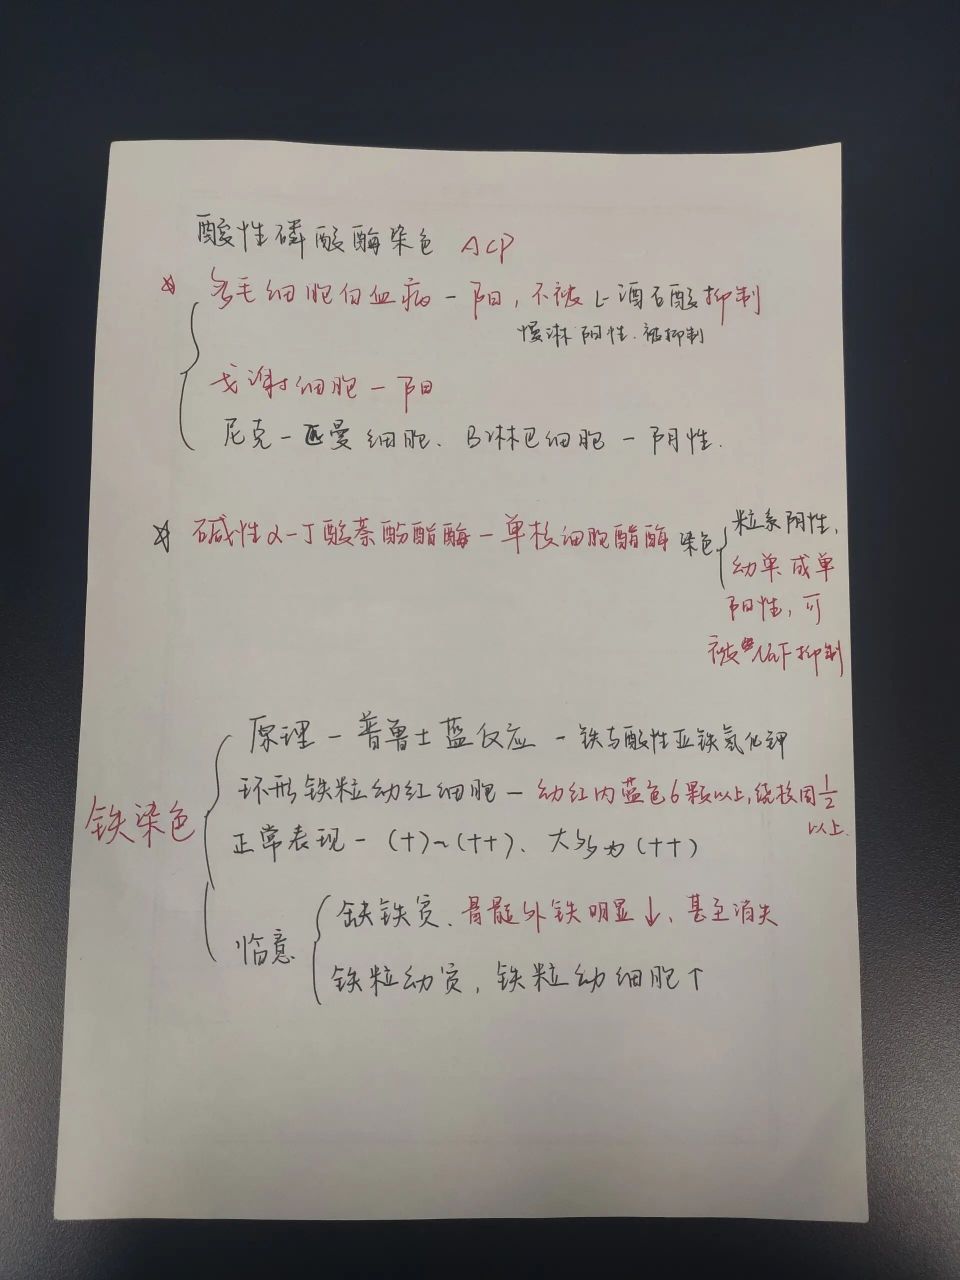 酸性磷酸酶染色 ACP
☆ 多毛细胞白血病-阳,不被L-酒石酸抑制
慢淋阳性.被抑制
戈谢细胞-阳
尼克-匹曼细胞、B淋巴细胞-阴性.
☆ 碱性α-丁酸萘酚酯酶-单核细胞酯酶染色
粒系阴性,
幼单成单
阳性,可
被NaF抑制
铁染色
原理-普鲁士蓝反应-铁与酸性亚铁氰化钾
环形铁粒幼红细胞-幼红内蓝色6颗以上,绕核周1/2
以上.
正常表现-(+)~(++)、大多为(++)
临意
缺铁贫、骨髓外铁明显↓、甚至消失
铁粒幼贫,铁粒幼细胞↑